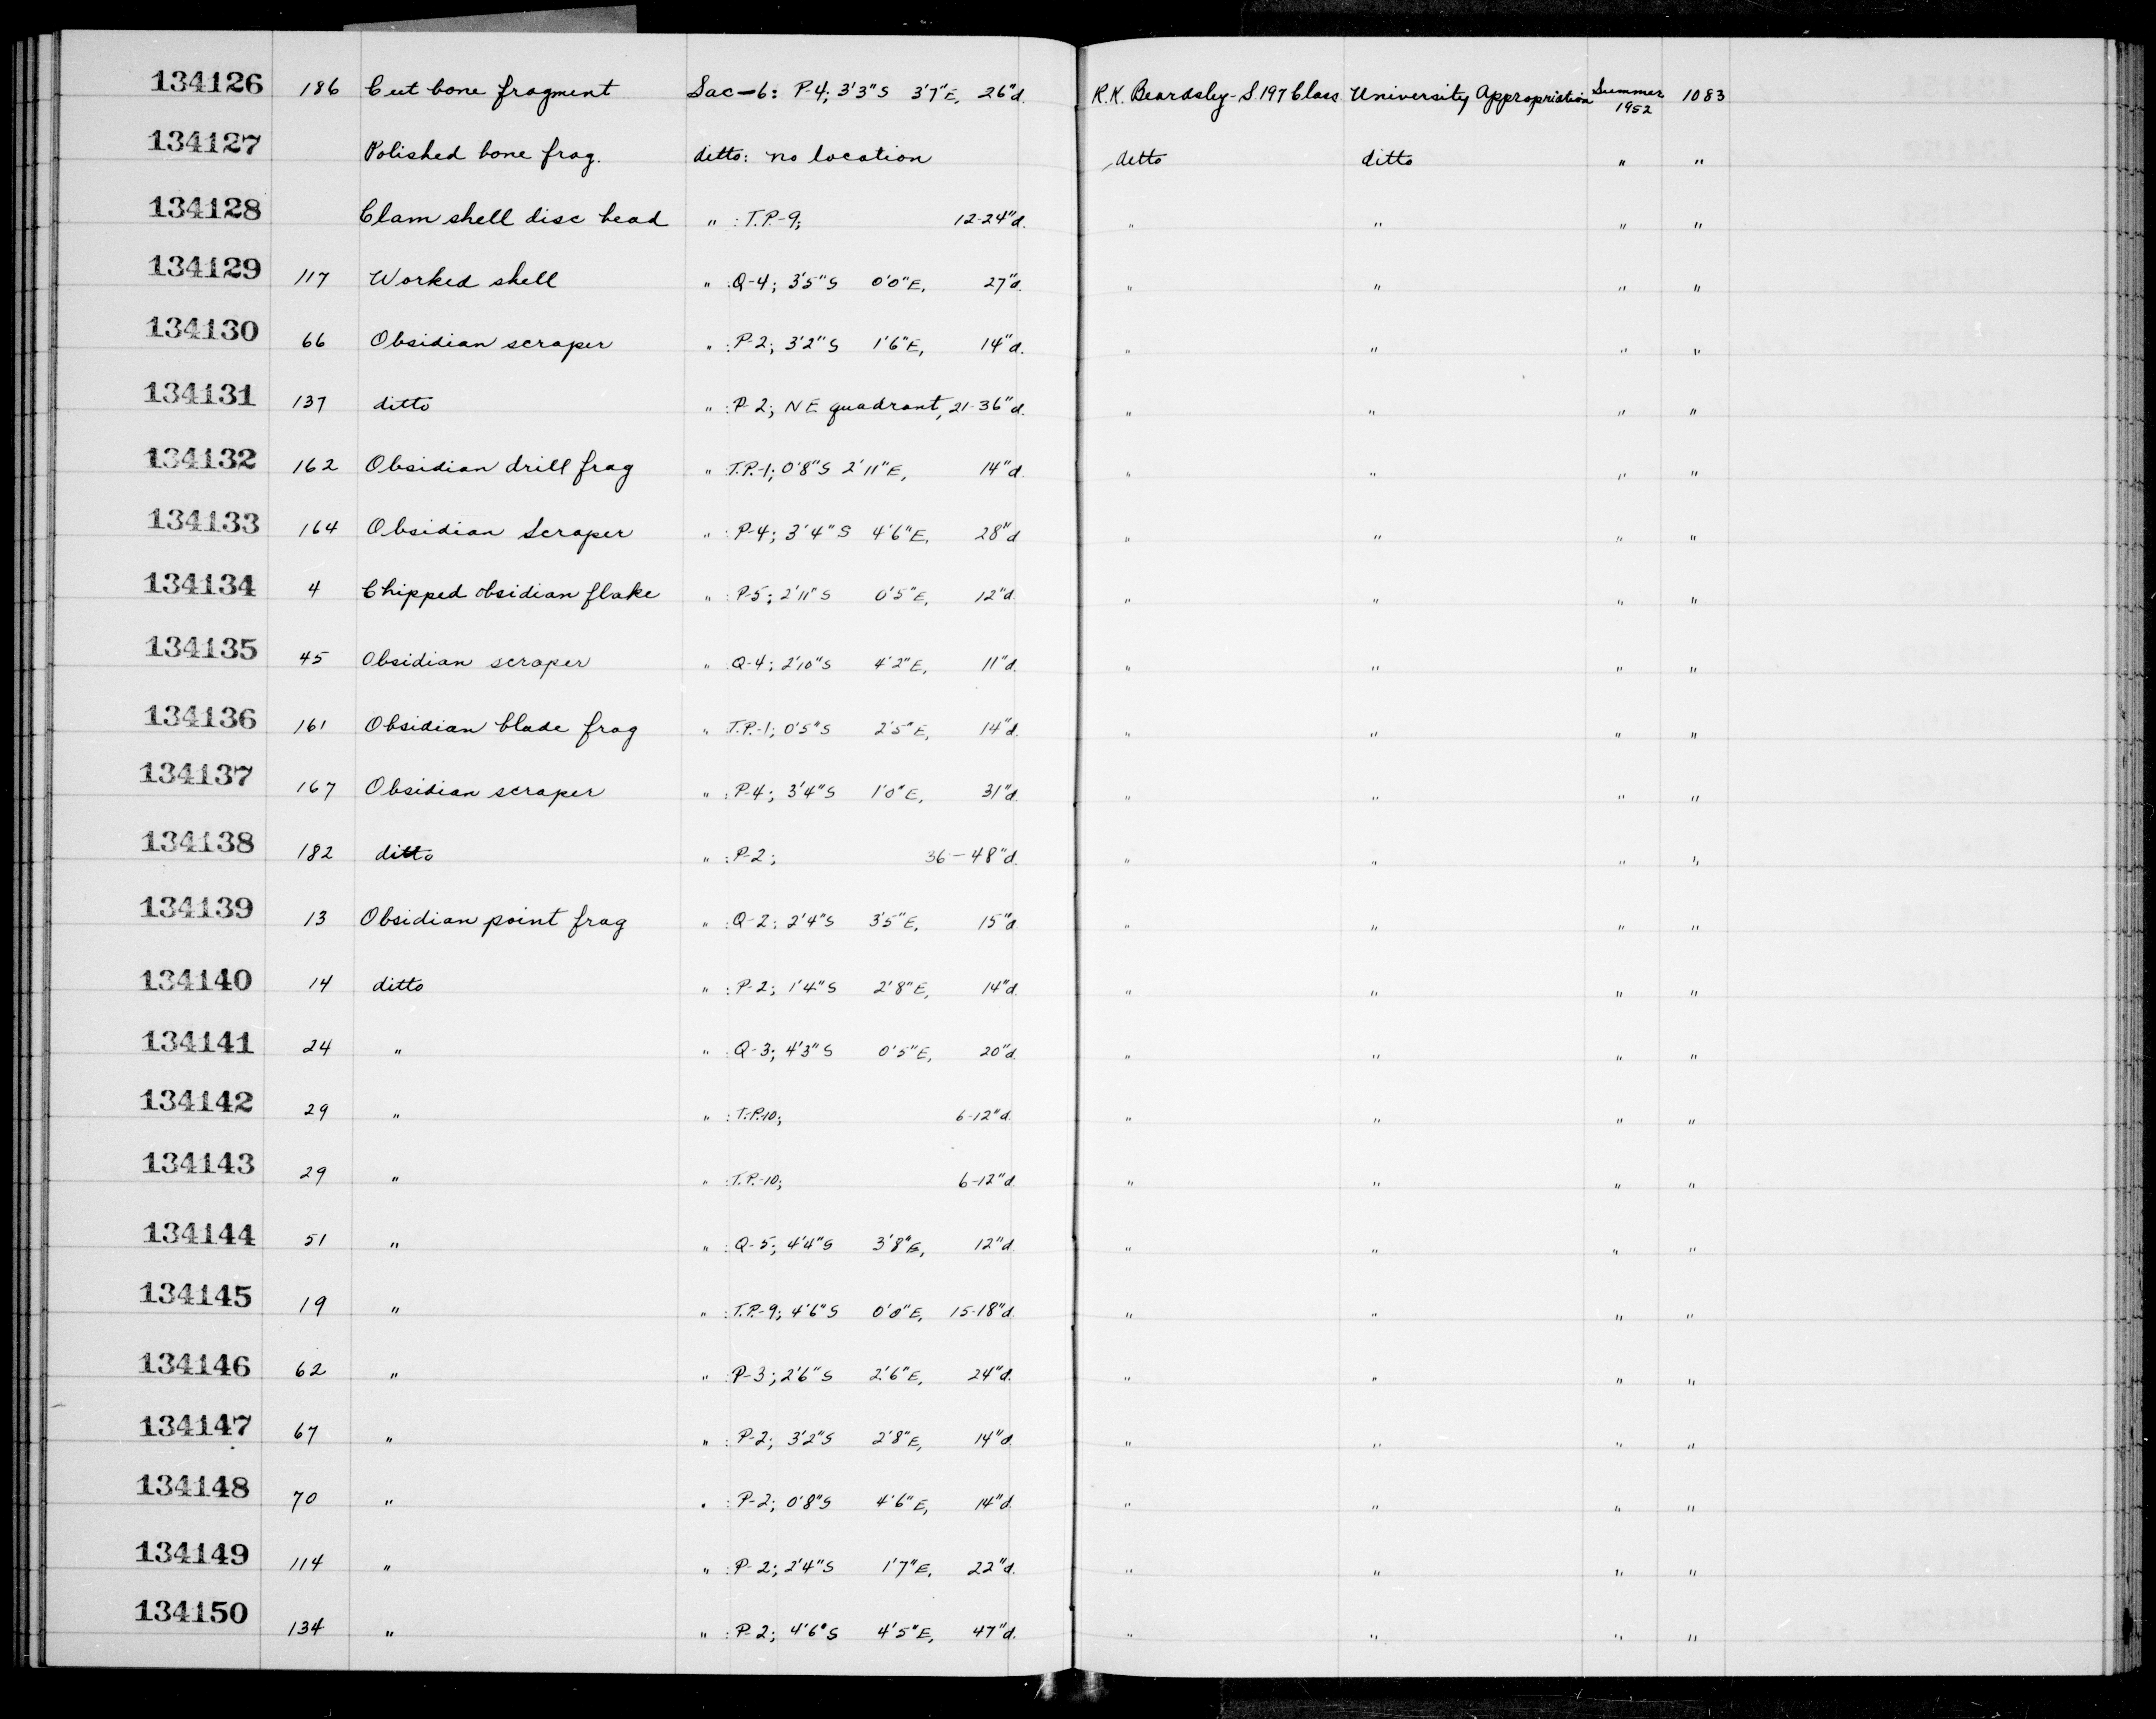 134126 186 Cut bone fragment Sac-6: P-4; 3'3"S 3'7"E, 26"d. R.K. Beardsley-S.197 Class University Appropriation Summer 1952 1083
134127 Polished bone frag. ditto: no location ditto ditto " "
134128 Clam shell disc bead " : T.P.-9; 12-24"d. " " " "
134129 117 Worked shell " : Q-4; 3'5"S 0'0"E, 27"d. " " " "
134130 66 Obsidian scraper " : P-2; 3'2"S 1'6"E, 14"d. " " " "
134131 137 ditto " : P-2; NE quadrant, 21-36"d. " " " "
134132 162 Obsidian drill frag " : T.P.-1; 0'8"S 2'11"E, 14"d. " " " "
134133 164 Obsidian Scraper " : P-4; 3'4"S 4'6"E, 28"d " " " "
134134 4 Chipped obsidian flake " : P-5; 2'11"S 0'5"E, 12"d. " " " "
134135 45 Obsidian scraper " : Q-4; 2'10"S 4'2"E, 11"d. " " " "
134136 161 Obsidian blade frag " : T.P.-1; 0'5"S 2'5"E, 14"d. " " " "
134137 167 Obsidian scraper " : P-4; 3'4"S 1'0"E, 31"d. " " " "
134138 182 ditto " : P-2; 36-48"d. " " " "
134139 13 Obsidian point frag " : Q-2; 2'4"S 3'5"E, 15"d " " " "
134140 14 ditto " : P-2; 1'4"S 2'8"E, 14"d. " " " "
134141 24 " " : Q-3; 4'3"S 0'5"E, 20"d. " " " "
134142 29 " " : T.P.10; 6-12"d. " " " "
134143 29 " " : T.P.-10; 6-12"d. " " " "
134144 51 " " : Q-5; 4'4"S 3'8"E, 12"d. " " " "
134145 19 " " : T.P.-9; 4'6"S 0'0"E, 15-18"d. " " " "
134146 62 " " : P-3; 2'6"S 2'6"E, 24"d. " " " "
134147 67 " " : P-2; 3'2"S 2'8"E, 14"d. " " " "
134148 70 " " : P-2; 0'8"S 4'6"E, 14"d. " " " "
134149 114 " " : P-2; 2'4"S 1'7"E, 22"d. " " " "
134150 134 " " : P-2; 4'6"S 4'5"E, 47"d. " " " "